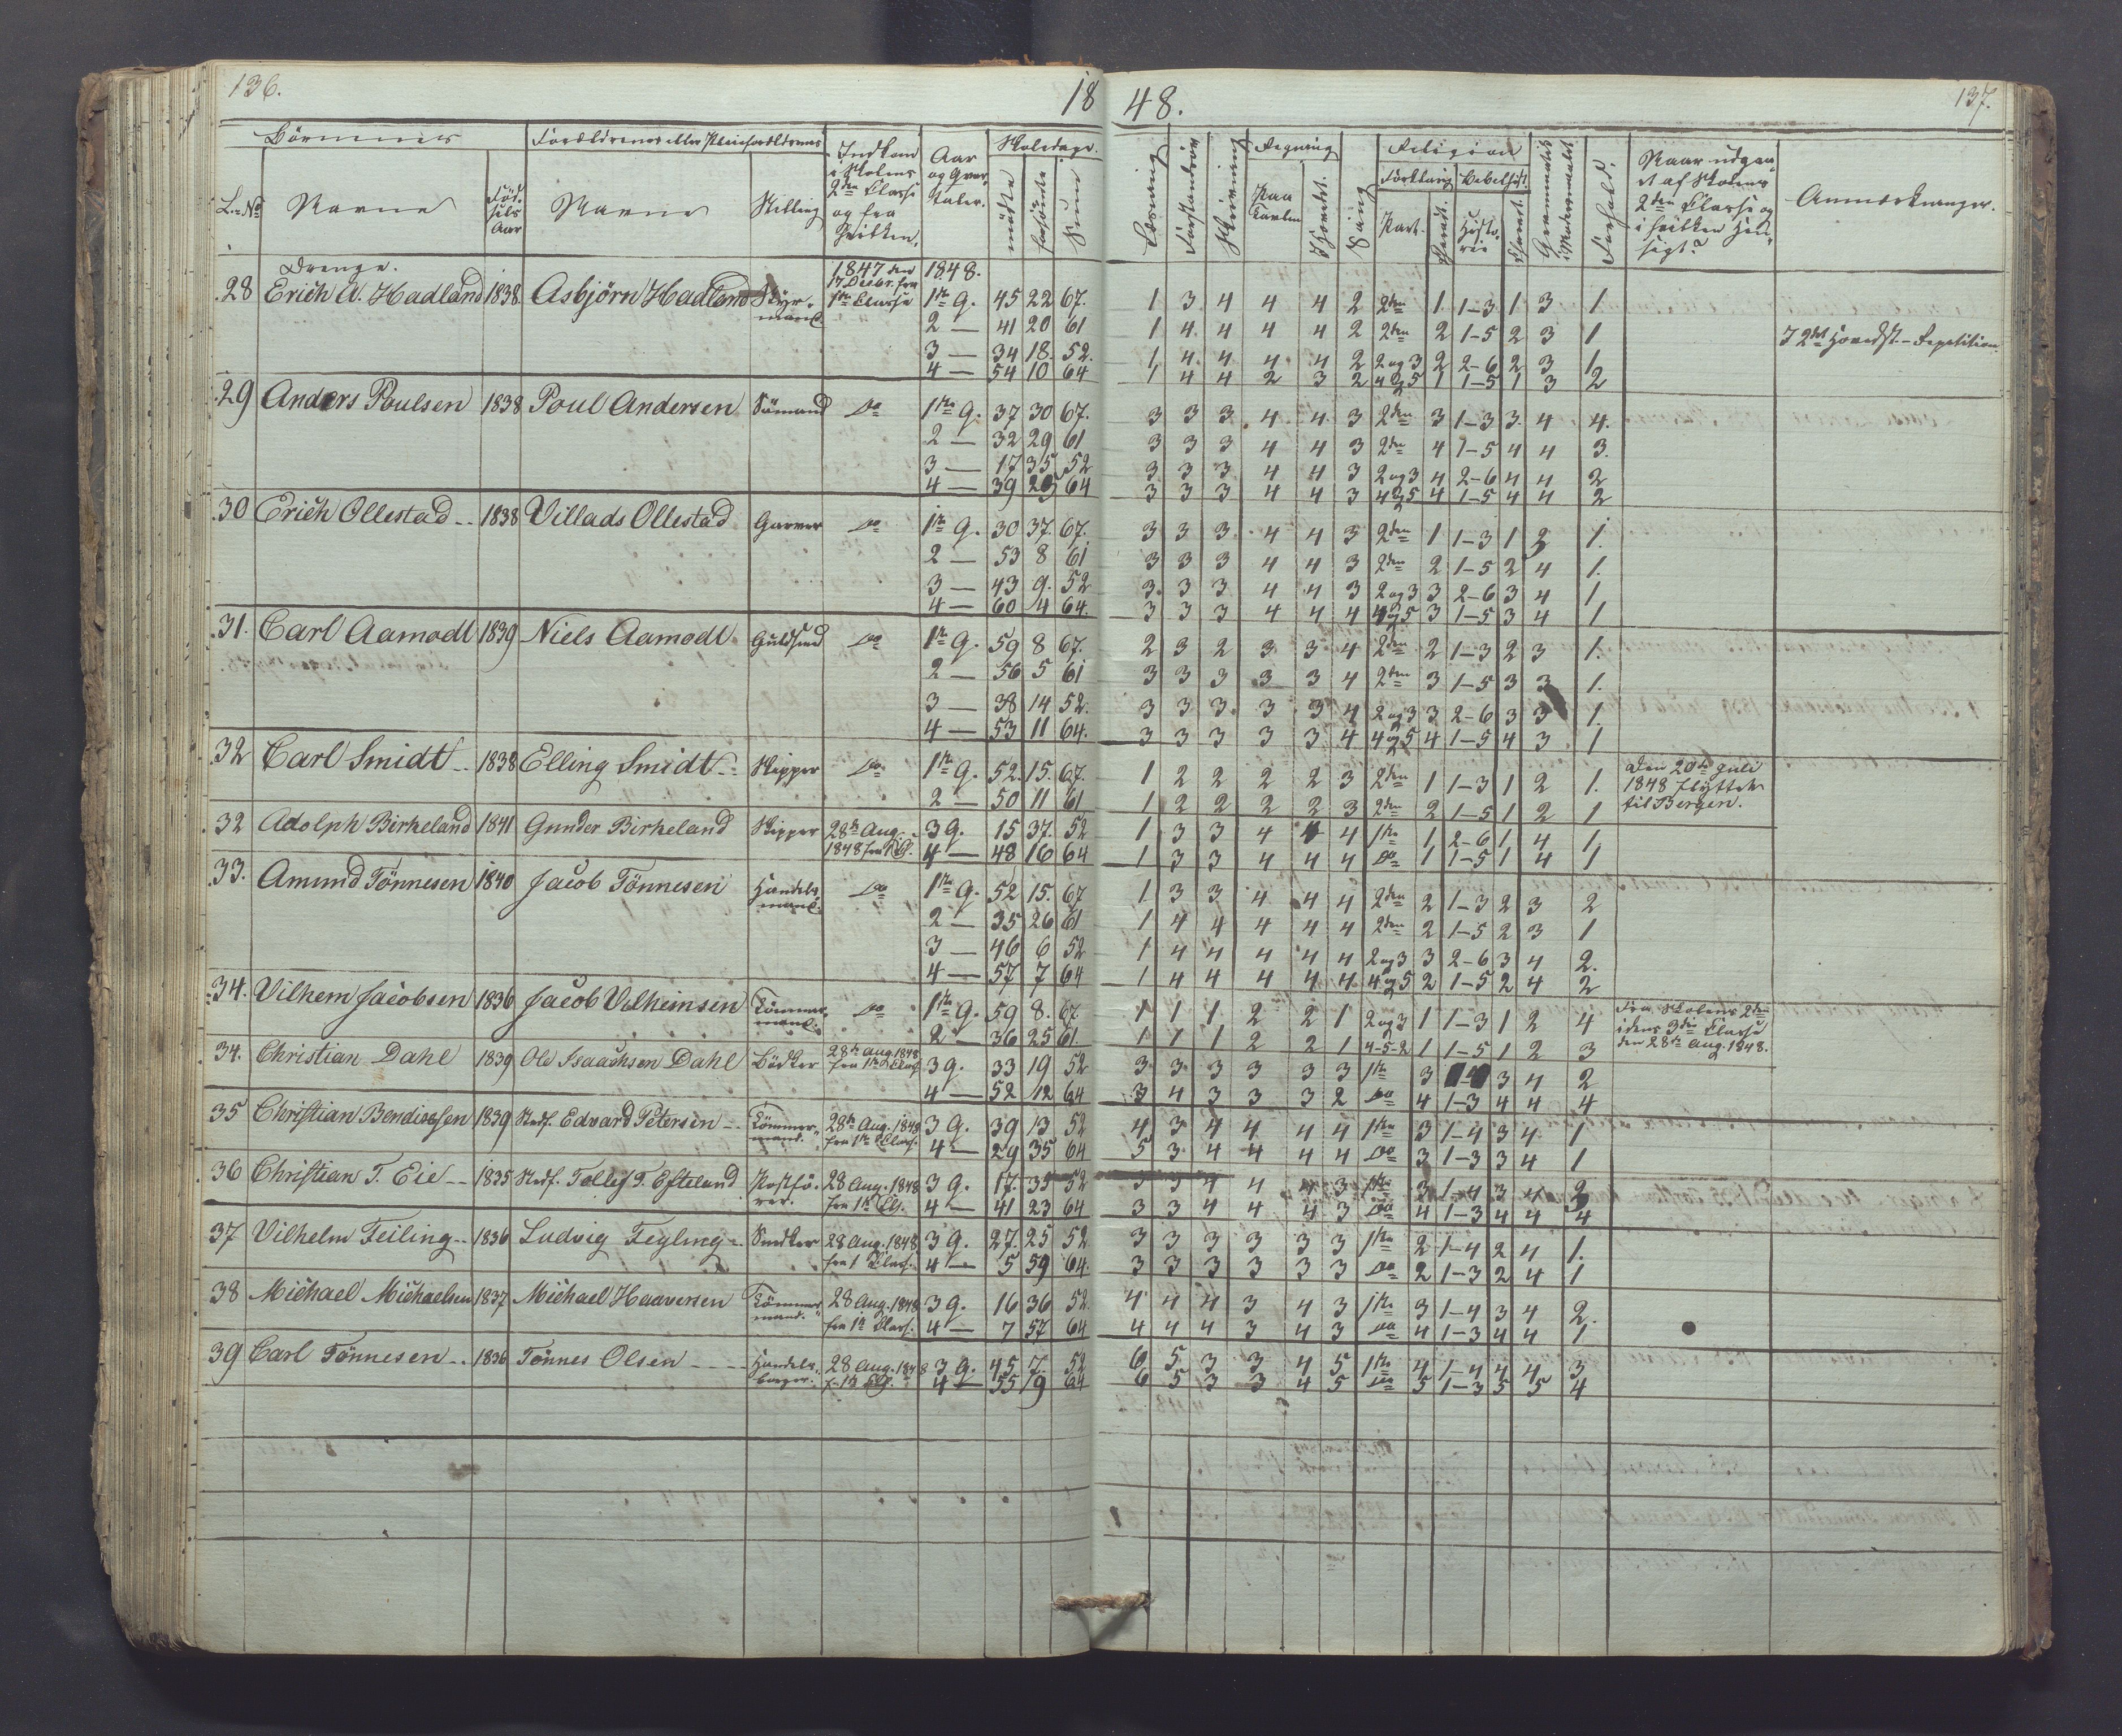 136.
18 48.
137.
Börnenes
Forældrenes eller Pleieforældrenes
Skoledage.
L. No
Navne
Födselsaar
Navne
Stilling
Indkom i Skolens 2den Classe og fra hvilken.
Aar og Qvartaler.
mödte
forsömte
Sum
Læsning
Forstandsöv
Skrivning
Regning
Paa Tavlen
Hovedr.
Sang
Religion
Forklaring
Bibelhist.
Part.
Historie
Grammatik i Modersmaalet
Forhold.
Naar udgaaet af Skolens 2den Classe og i hvilken Hensigt?
Anmærkninger.
Drenge.
28 Erich A. Hadland 1838. Asbjörn Hadland Styrmand 1847 den 17 Decbr. fra 1ste Classe 1848. 1ste Q. 45 22 67. 1 3 4 4 4 2 2den 1 1-3 1 3 1
2 — 41 20 61 1 4 4 4 4 2 2den 2 1-5 2 3 1
3 — 34 18. 52. 1 4 4 4 4 2 2og3 2 2-6 2 3 1
4 — 54 10 64 1 4 4 2 3 2 4og5 1 1-5 1 3 2
29 Anders Poulsen 1838 Poul Andersen Sömand do 1ste Q. 37 30 67. 3 3 3 4 4 3 2den 3 1-3 3 4 4.
2 — 32 29 61 3 3 3 4 4 3 2den 4 1-5 4 4 3.
3 — 17 35 52 3 3 3 4 4 3 2og3 4 2-6 4 4 2
4 — 39 25 64 3 3 3 4 4 3 4og5 4 1-5 4 4 2
30 Erich Ollestad 1838 Villads Ollestad Garver do 1ste Q. 30 37. 67. 3 3 3 4 4 3 2den 1 1-3 1 3 1.
2 — 53 8 61 3 3 3 4 4 3 2den 2 1-5 2 4 1.
3 — 43 9. 52 3 3 3 4 4 3 2og3 3 2-6 3 4 1
4 — 60 4 64. 3 3 3 4 4 4 4og5 3 1-5 3 4 1
31. Carl Aamodt 1839 Niels Aamodt Guldsmed do 1ste Q. 59 8 67. 2 3 2 3 3 4 2den 2 1-3 2 3 1.
2 — 56 5 61 3 3 3 3 3 4 2den 3 1-5 3 3 1.
3 — 38 14 52. 3 3 3 3 3 4 2og3 3 2-6 3 3 1.
4 — 53 11 64. 3 3 3 3 3 4 4og5 4 1-5 4 3 1
32 Carl Smidt 1838 Elling Smidt Skipper do 1ste Q. 52. 15. 67. 1 2 2 2 2 3 2den 1 1-3 1 2 1. Den 20de Juli 1848 flyttet til Bergen.
2 — 50 11 61 1 2 2 2 2 3 2den 2 1-5 1 2 1
32 Adolph Birkeland 1841 Gunder Birkeland Skipper 28de Aug. 1848 fra 1 Cl. 3 Q. 15 37. 52 1 3 3 4 4 4 1ste 1 2-6 1 4 1
4 — 48 16 64 1 3 3 4 4 4 do 1 1-5 1 4 1
33. Amund Tönnesen 1840 Jacob Tönnesen Handelsmand do 1ste Q. 52 15. 67 1 3 3 4 4 4 2den 2 1-3 2 3 2
2 — 35 26 61 1 4 4 4 4 4 2den 2 1-5 2 3 1
3 — 46 6 52 1 4 4 4 4 4 2og3 3 2-6 3 4 2.
4 — 57 7 64 1 4 4 4 4 4 4og5 2 1-5 2 4 2
34. Vilhem Jacobsen 1836 Jacob Vilhemsen Tömmermand do 1ste Q. 59 8. 67 1 1 1 2 2 1 2og3 1 1-3 1 2 4 Fra Skolens 2den i dens 3die Classe den 28de Aug. 1848.
2 — 36 25 61. 1 1 1 2 2 1 4-5-2 1 1-5 1 2 3
34. Christian Dahl 1839 Ole Isaachsen Dahl Bödker 28de Aug. 1848 fra 1ste Class. 3 Q. 33 19 52 3 3 3 3 3 3 1ste 3 3 4 2
4 — 52 12 64 3 4 3 3 3 2 do 4 1-3 4 4 4
35 Christian Bendicssen 1839 Stedf. Edvard Petersen Tömmermand. 28de Aug. 1848 fra 1ste Class. 3 Q. 39 13 52 4 3 4 4 4 4 1ste 3 1-4 3 4 1
4 — 29 35 64 5 3 4 4 4 4 do 3 1-3 3 4 1
36 Christian T. Eie 1835 Stedf. Tollef T. Efteland Postförer. 28 Aug. 1848 fra 1ste Cls. 3 Q. 17. 35 52 3 3 4 4 4 3 1ste 3 1-4 3 4 2
4 — 41 23 64 3 3 4 4 4 3 do 4 1-3 4 4 4
37 Vilhelm Feiling 1836 Ludvig Feyling Snedker 28 Aug. 1848 fra 1 Class. 3 Q. 27 25 52 3 3 3 3 3 3 1ste 2 1-4 2 4 1.
4 — 5 59 64. 3 3 3 3 3 3 do 2 1-3 2 4 1
38 Michael Michaelsen 1837 Michael Haaversen Tömmermand. 28 Aug. 1848 fra 1ste Class. 3 Q. 16 36 52. 4 4 4 3 4 3 1ste 3 1-4 3 4 2.
4 — 7 57 64 4 4 4 3 4 3 do 4 1-3 4 4 1
39 Carl Tönnesen 1836 Tönnes Olsen Handelsborger. 28 Aug. 1848 f. 1ste Cl. 3 Q. 45 7. 52 6 5 3 3 4 5 1ste 4 1-4 4 4 3
4 — 55 9 64 6 5 3 3 4 5 do 5 1-3 5 5 4
I 2det Hovedst. – Repetition.